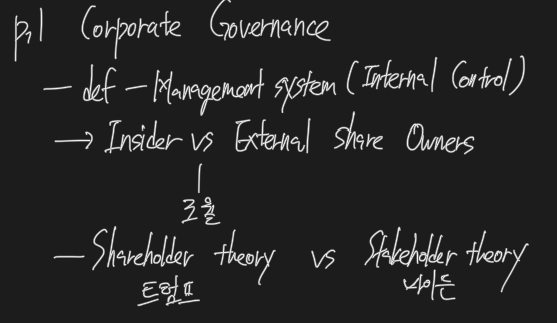 p.1 Corporate Governance
— def — Management system (Internal Control)
→ Insider vs External share Owners
조율
— Shareholder theory vs Stakeholder theory
트럼프 바이든